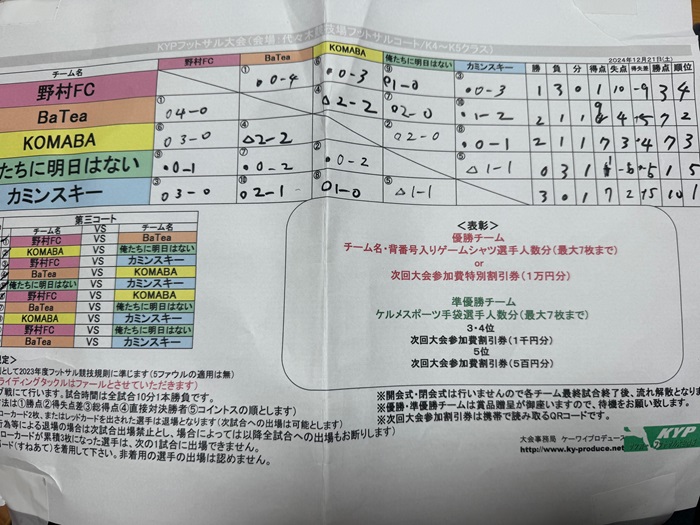 KYPフットサル大会(会場：代々木競技場フットサルコート/K4～K5クラス)
2024年12月21日(土)
チーム名 野村FC BaTea KOMABA 俺たちに明日はない カミンスキー 勝 負 分 得点 失点 得失差 勝点 順位
野村FC ① ●0-4 ⑥ ●0-3 ⑨ ○1-0 ③ ●0-3 1 3 0 1 10 -9 3 4
BaTea ① ○4-0 ④ △2-2 ⑦ ○2-0 ⑩ ●1-2 2 1 1 9 4 +5 7 2
KOMABA ⑥ ○3-0 ④ △2-2 ② ○2-0 ⑧ ●0-1 2 1 1 7 3 +4 7 3
たちに明日はない ⑨ ●0-1 ⑦ ●0-2 ② ●0-2 ⑤ △1-1 0 3 1 1 -5 1 5
カミンスキー ③ ○3-0 ⑩ ○2-1 ⑧ ○1-0 ⑤ △1-1 3 0 1 7 2 +5 10 1
第三コート
チーム名 VS チーム名
野村FC VS BaTea
KOMABA VS 俺たちに明日はない
野村FC VS カミンスキー
BaTea VS KOMABA
俺たちに明日はない VS カミンスキー
野村FC VS KOMABA
BaTea VS 俺たちに明日はない
KOMABA VS カミンスキー
野村FC VS 俺たちに明日はない
BaTea VS カミンスキー
＜表彰＞
優勝チーム
チーム名・背番号入りゲームシャツ選手人数分(最大7枚まで)
or
次回大会参加費特別割引券(1万円分)
準優勝チーム
ケルメスポーツ手袋選手人数分(最大7枚まで)
3・4位
次回大会参加費割引券(1千円分)
5位
次回大会参加費割引券(5百円分)
規定＞
として2023年度フットサル競技規則に準じます(5ファウルの適用は無)
ライディングタックルはファールとさせていただきます)
グ戦にて行います。試合時間は全試合10分1本勝負です。
方法は①勝点②得失点差③総得点④直接対決勝者⑤コイントスの順とします)
ローカード2枚、またはレッドカードを出された選手は退場となります(次試合への出場は可能とします)
行為等による退場の場合は次試合出場禁止とし、場合によっては以降全試合への出場もお断りします)
ローカードが累積3枚になった選手は、次の1試合に出場できません。
ード(すねあて)を着用して下さい。非着用の選手の出場は認めません。
※開会式・閉会式は行いませんので各チーム最終試合終了後、流れ解散となりま
※優勝・準優勝チームは賞品贈呈が御座いますので、待機をお願い致します。
※次回大会参加割引券は携帯で読み取るQRコードです。
大会事務局 ケーワイプロデュース
http://www.ky-produce.net
KYP